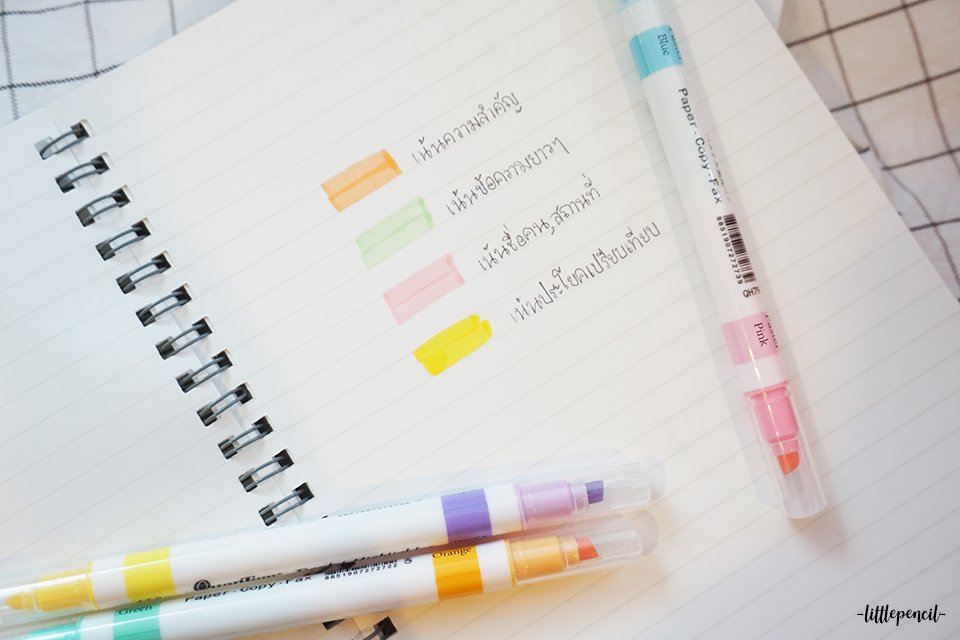 เน้นความสำคัญ
เน้นข้อความยาวๆ
เน้นชื่อคน,สถานที่
เน้นประโยคเปรียบเทียบ
Blue
Paper · Copy · Fax
8851907272739
Pastel
Pink
Orange
8851907272722
Paper · Copy · Fax
Green
-littlepencil-